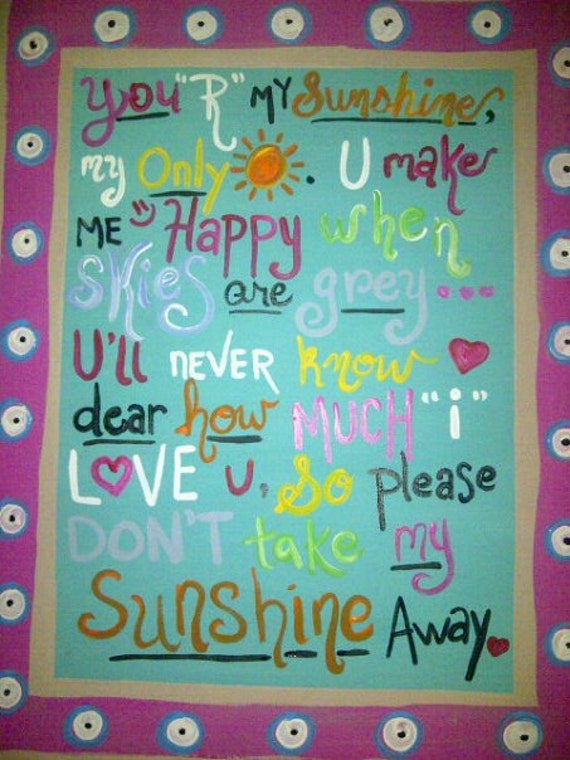 you "R" MY Sunshine,
my Only . U make
ME Happy when
SKIES are grey...
U'll NEVER know
dear how MUCH "i"
LOVE U, So please
DON'T take my
Sunshine Away.